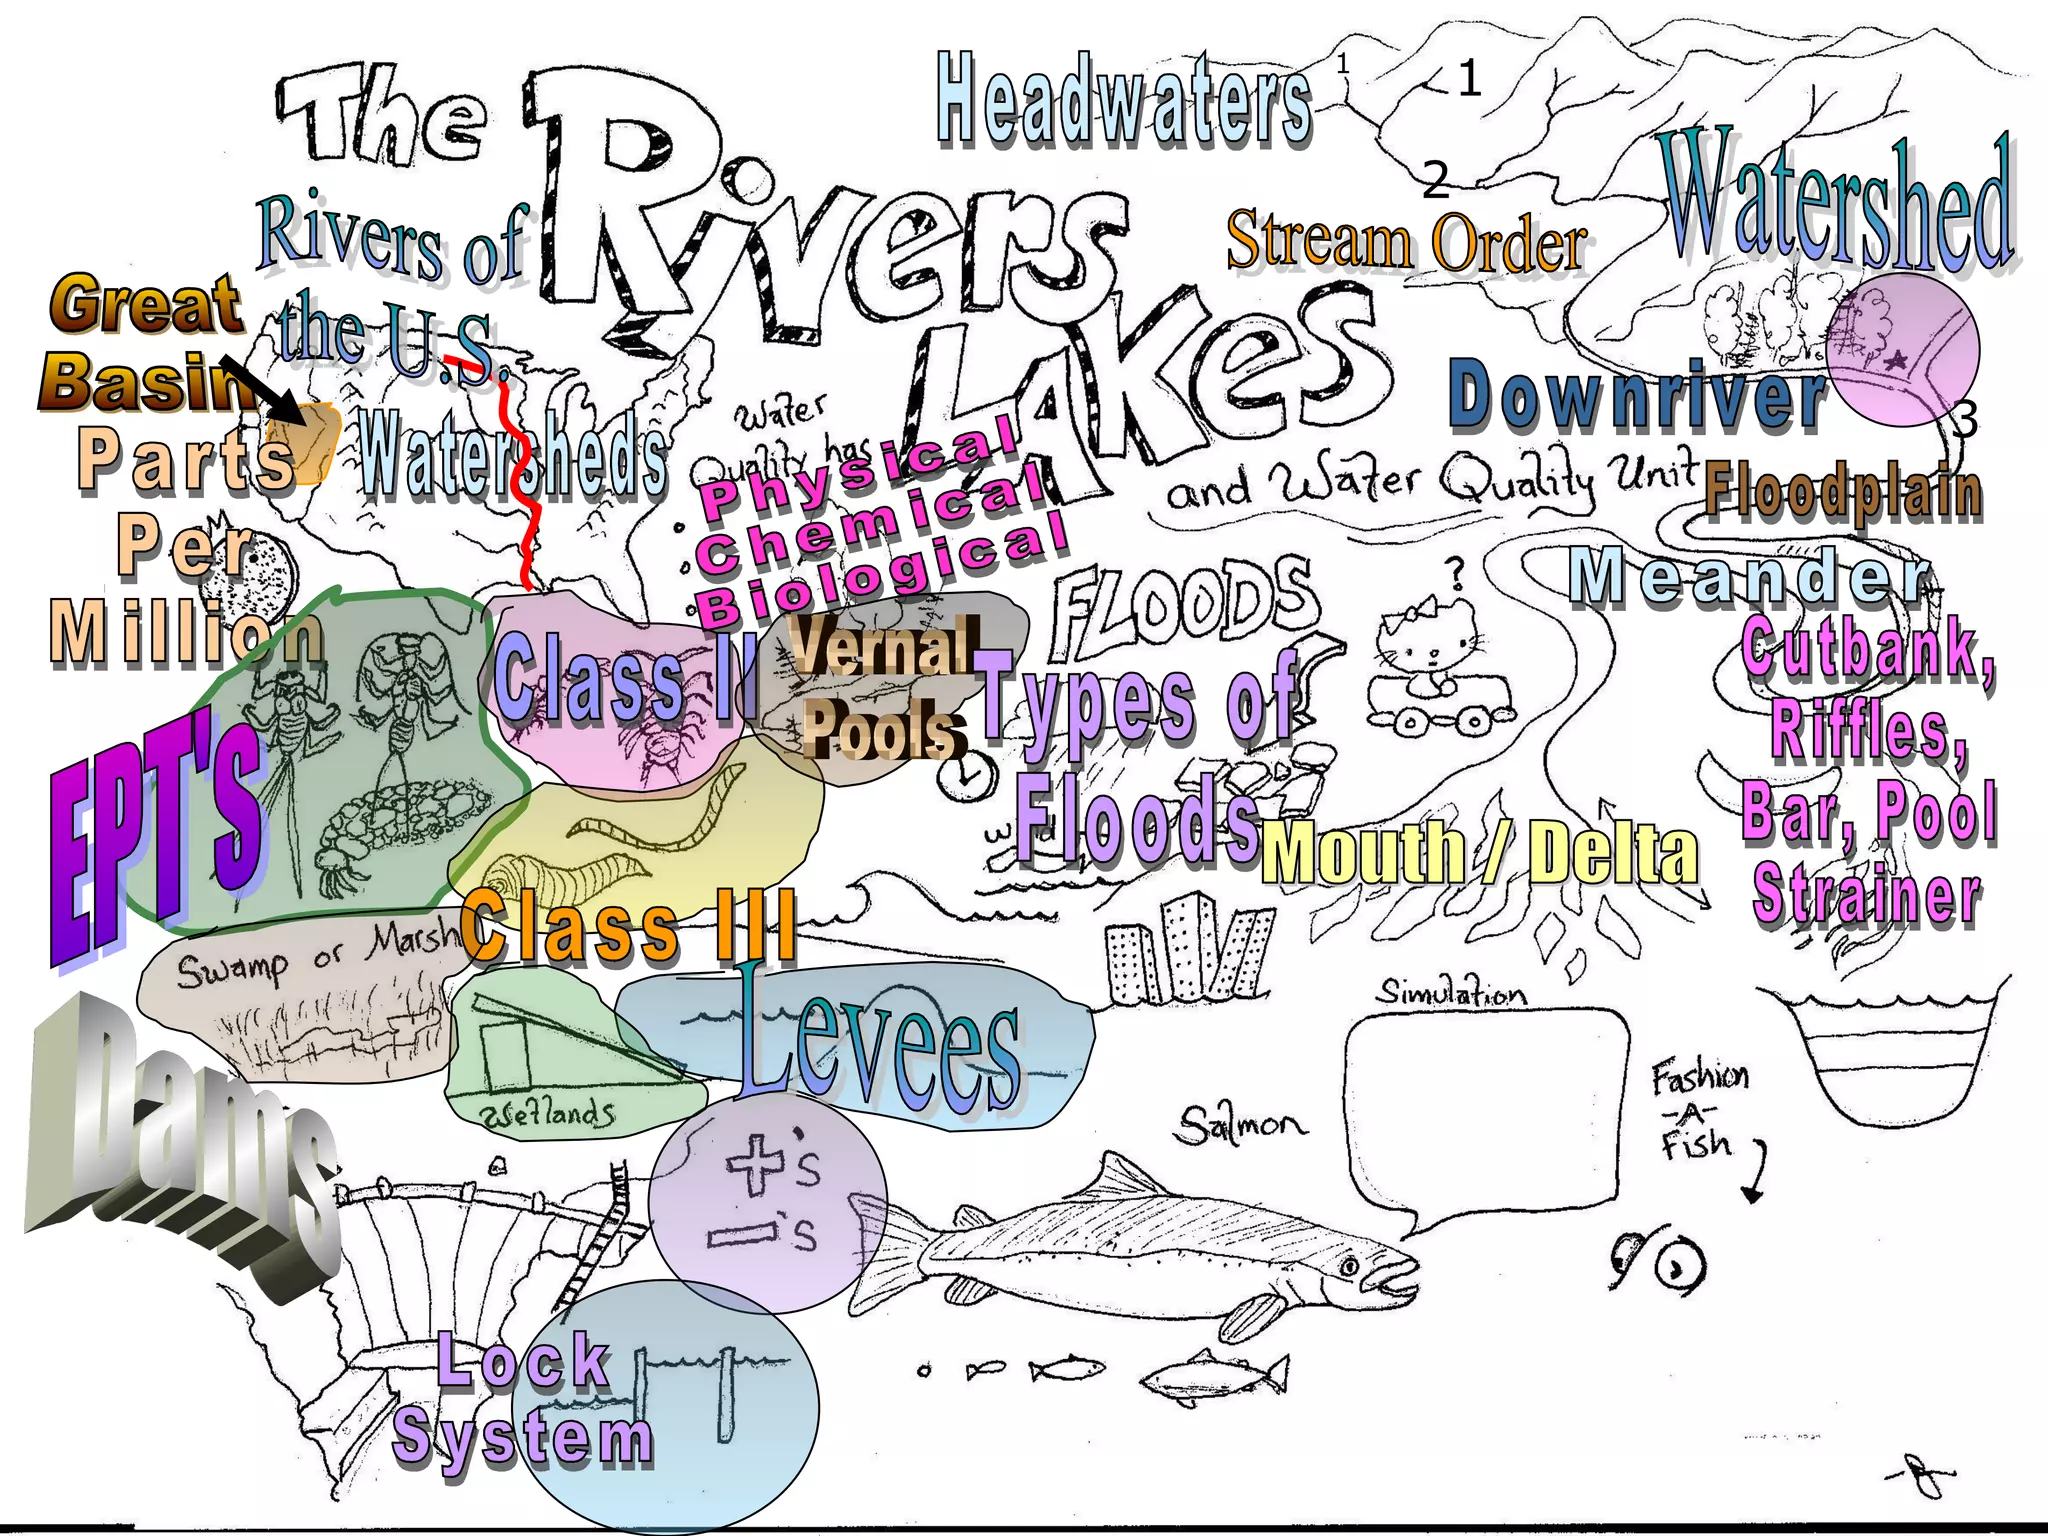 The
Rivers
Lakes
and Water Quality Unit
Headwaters
1
1
2
Stream Order
Watershed
Rivers of
the U.S.
Great
Basin
Watersheds
Water
Quality has
Physical
Chemical
Biological
Downriver
3
Floodplain
Meander
Parts
Per
Million
FLOODS
?
Cutbank,
Riffles,
Bar, Pool
Strainer
EPT's
Class II
Vernal
Pools
Types of
Floods
Mouth / Delta
Class III
Swamp or Marsh
Levees
Wetlands
Dams
+'s
-'s
Simulation
Salmon
Fashion
-A-
Fish
Lock
System